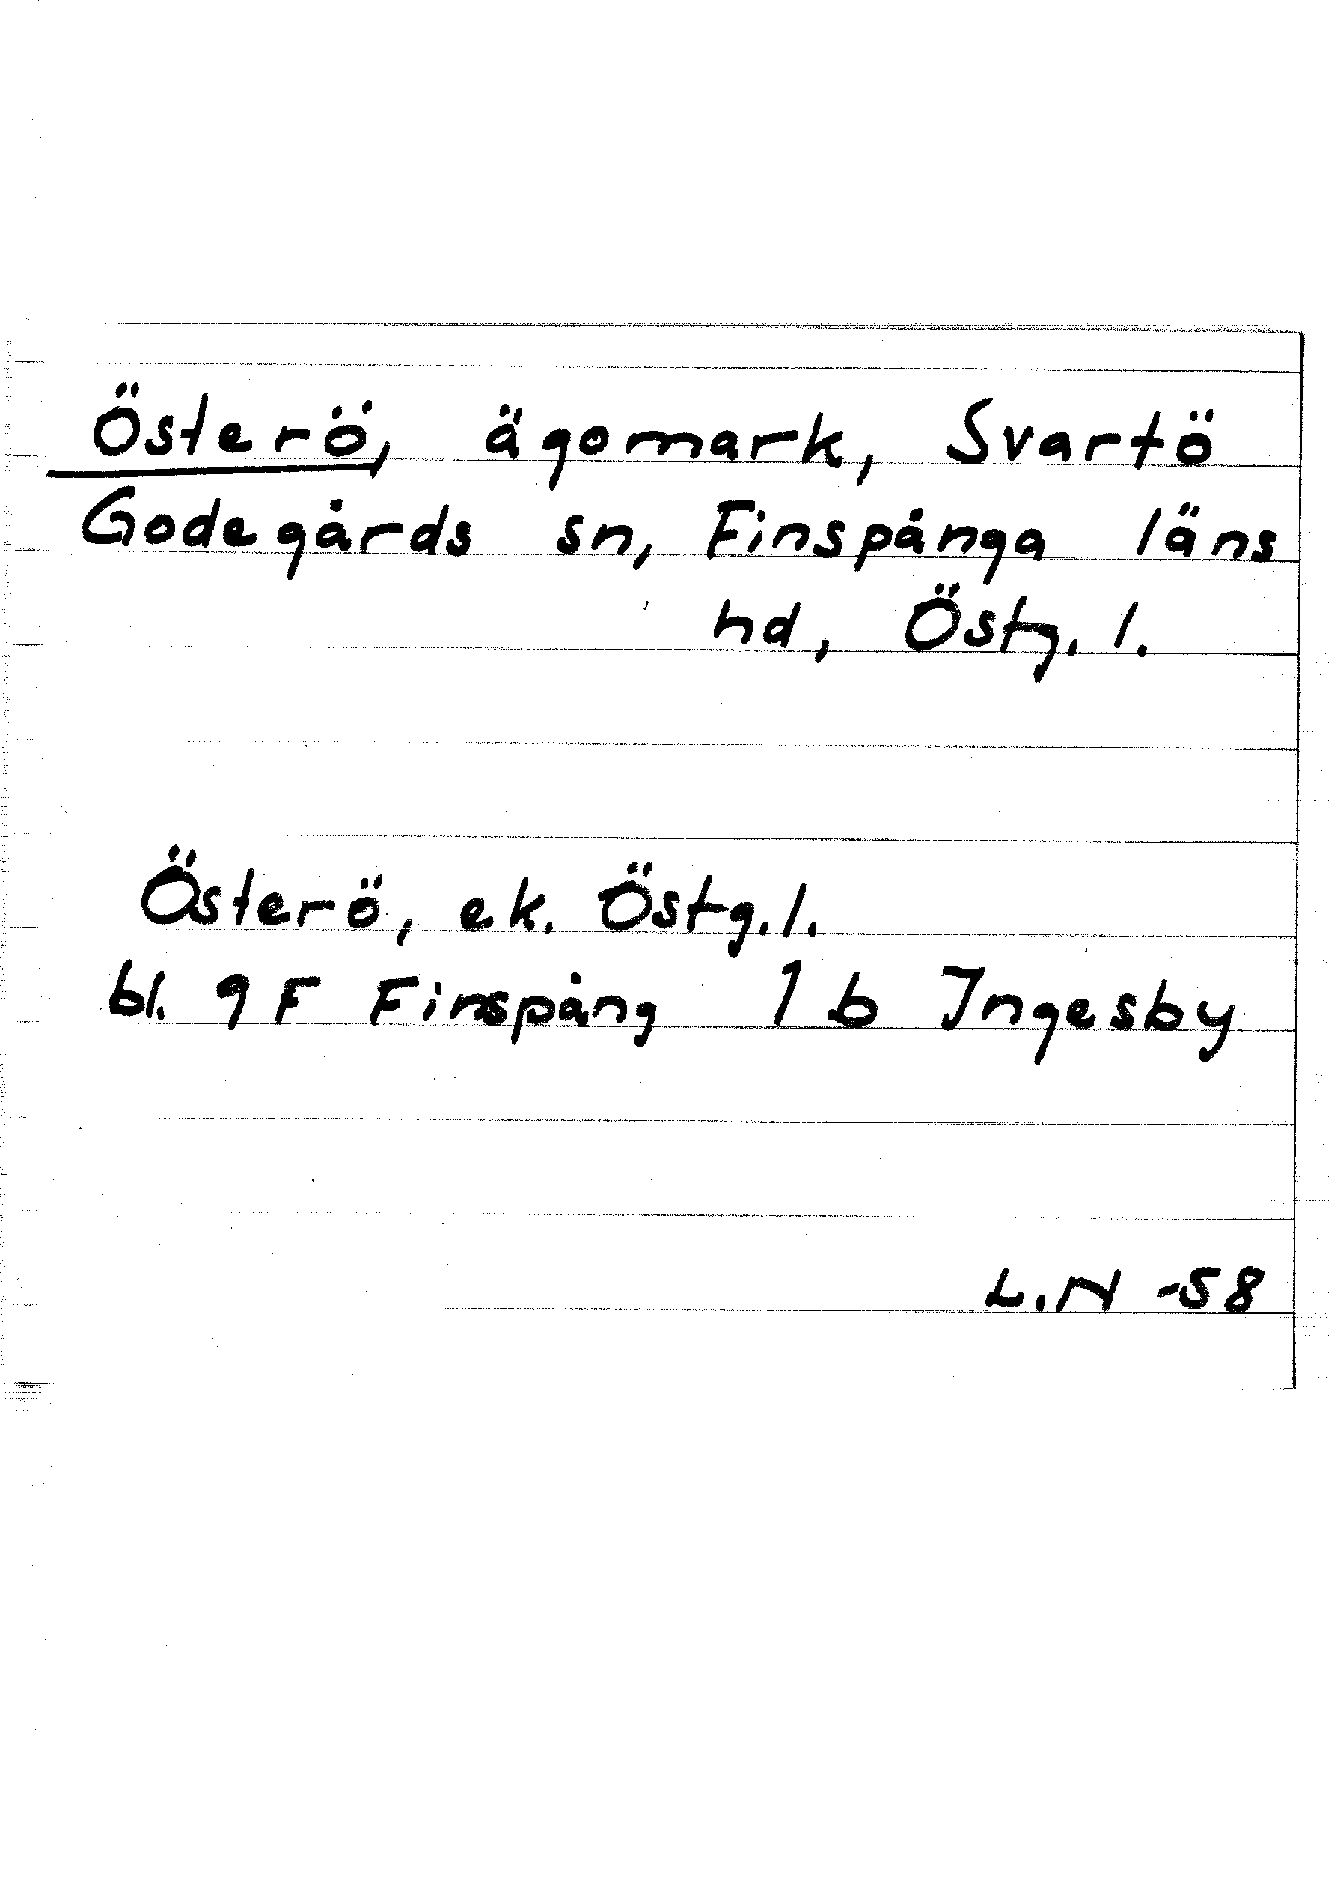 Österö, ägomark, Svartö
Godegårds sn, Finspånga läns
hd, Östg. l.
Österö, ek. Östg. l.
bl. 9 F Finspång 1 b Ingesby
L.N -58